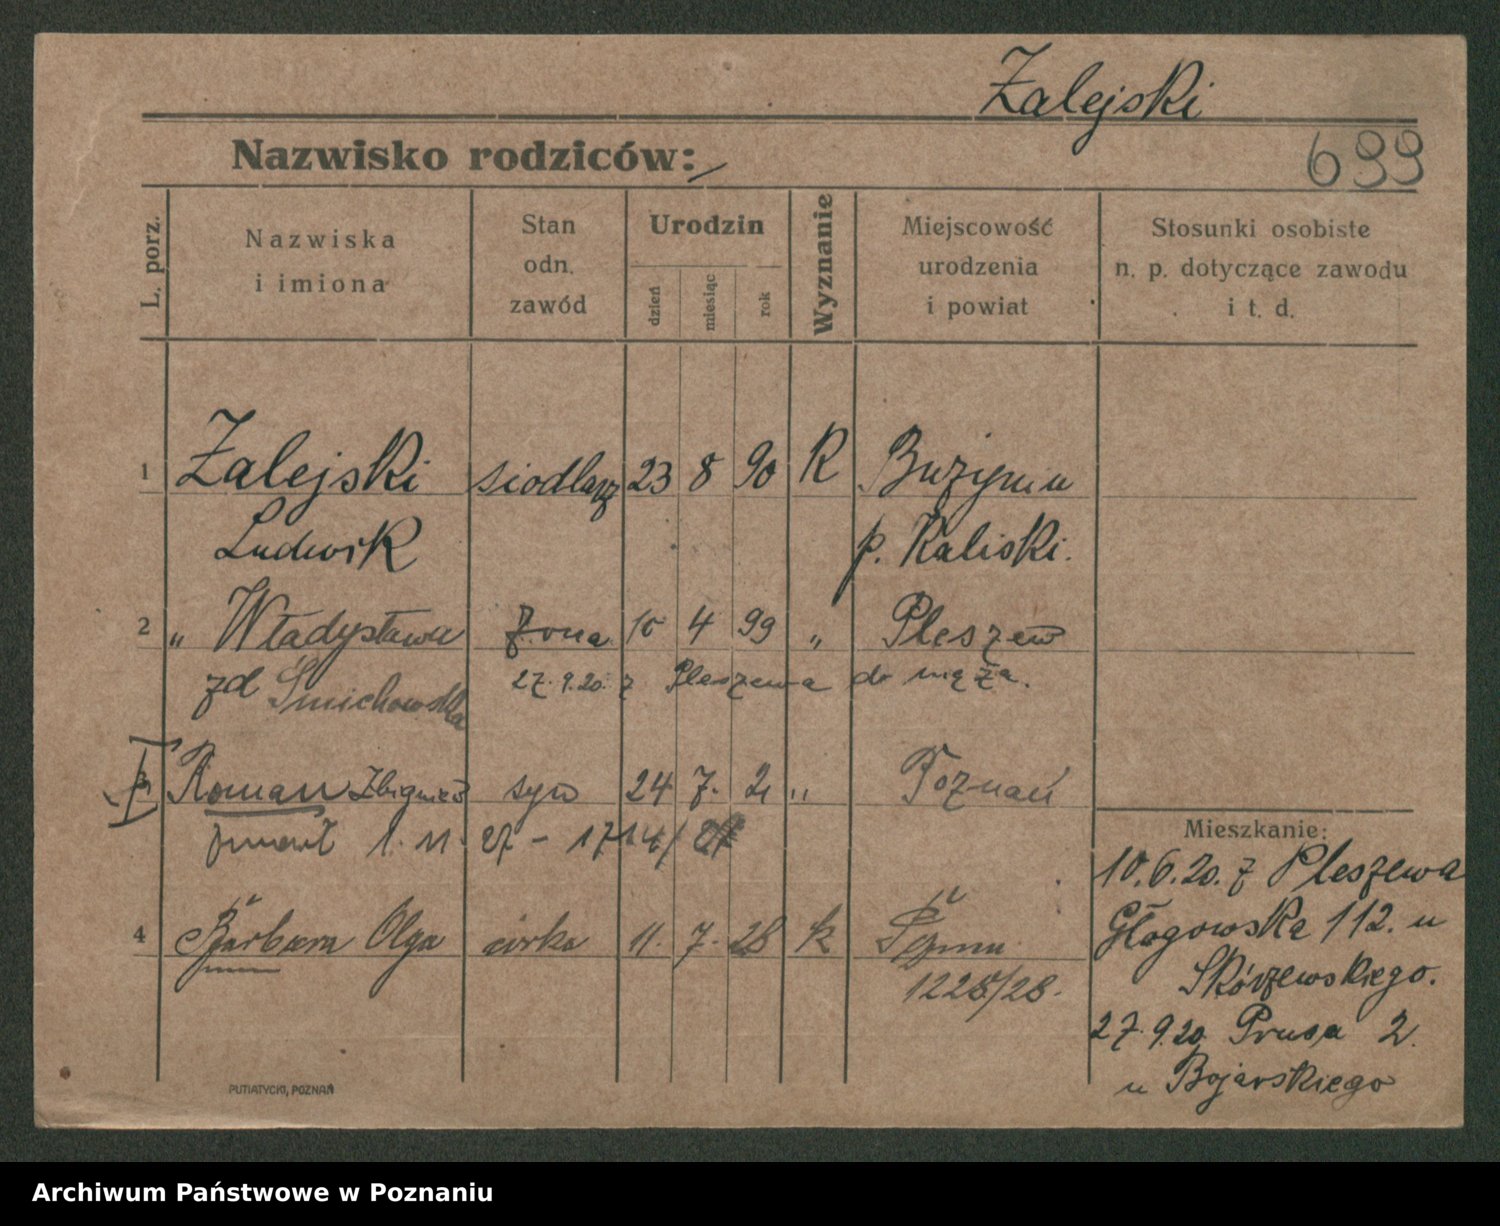 Zalejski
Nazwisko rodziców: /
699
L. porz.
Nazwiska i imiona
Stan odn. zawód
Urodzin
dzień miesiąc rok
Wyznanie
Miejscowość urodzenia i powiat
Stosunki osobiste n. p. dotyczące zawodu i t. d.
1 Zalejski siodlarz 23 8 90 K
Ludwik p. Kaliski.
2 „ Władysława żona 10 4 99 „ Pleszew
zd Śmichowska 27.9.20. z Pleszewa do męża.
3 Roman Zbigniew syn 24 7. 21 „ Poznań
zmarł 1. 11. 27 - 1714/
4 Barbara Olga córka 11. 7. 28 k
1228/28.
Mieszkanie:
10.6.20. z Pleszewa
Głogowska 112. u
Skórzewskiego.
27.9.20. Prusa 2.
u Bojarskiego
PUTIATYCKI, POZNAŃ
Archiwum Państwowe w Poznaniu